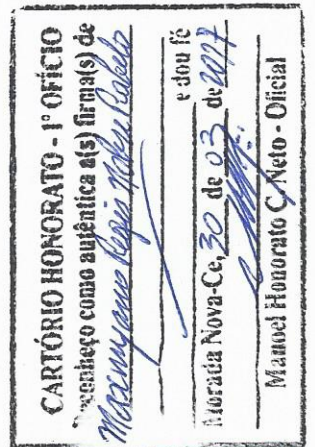 CARTÓRIO HONORATO - 1º OFÍCIO
Reconheço como autêntica a(s) firma(s) de
Regis
e dou fé
Morada Nova-Ce, 30 de 03 de 2017
Manoel Honorato C. Neto - Oficial